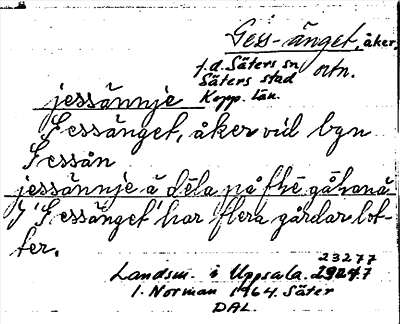 Gess-änget, åker,
f.d. Säters sn ortn.
Säters stad
Kopp. län.
jessännje
Gessänget, åker vid byn
Gessån
jessännjè ä dèla på flè gåḷanä
I 'Gessänget' har flera gårdar lot-
ter.
23277
Landsm. i Uppsala 29247
I. Norman 1964. Säter
DAL.